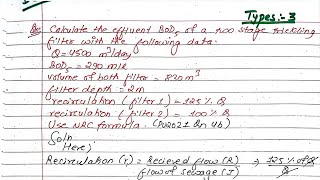 Types:- 3
Qs: Calculate the effluent BOD5 of a two stage trickling
filter with the following data.
Q = 4500 m³/day
BOD5 = 290 mg/l
volume of both filter = 830 m³
filter depth = 2m
recirculation (filter 1) = 125 % Q
recirculation (filter 2) = 100 % Q
Use NRC formula. (PU2021 Qn 4b)
Soln
Here;
Recirculation (r) = Recieved flow (R) → 125 % of Q
flow of sewage (I) Q